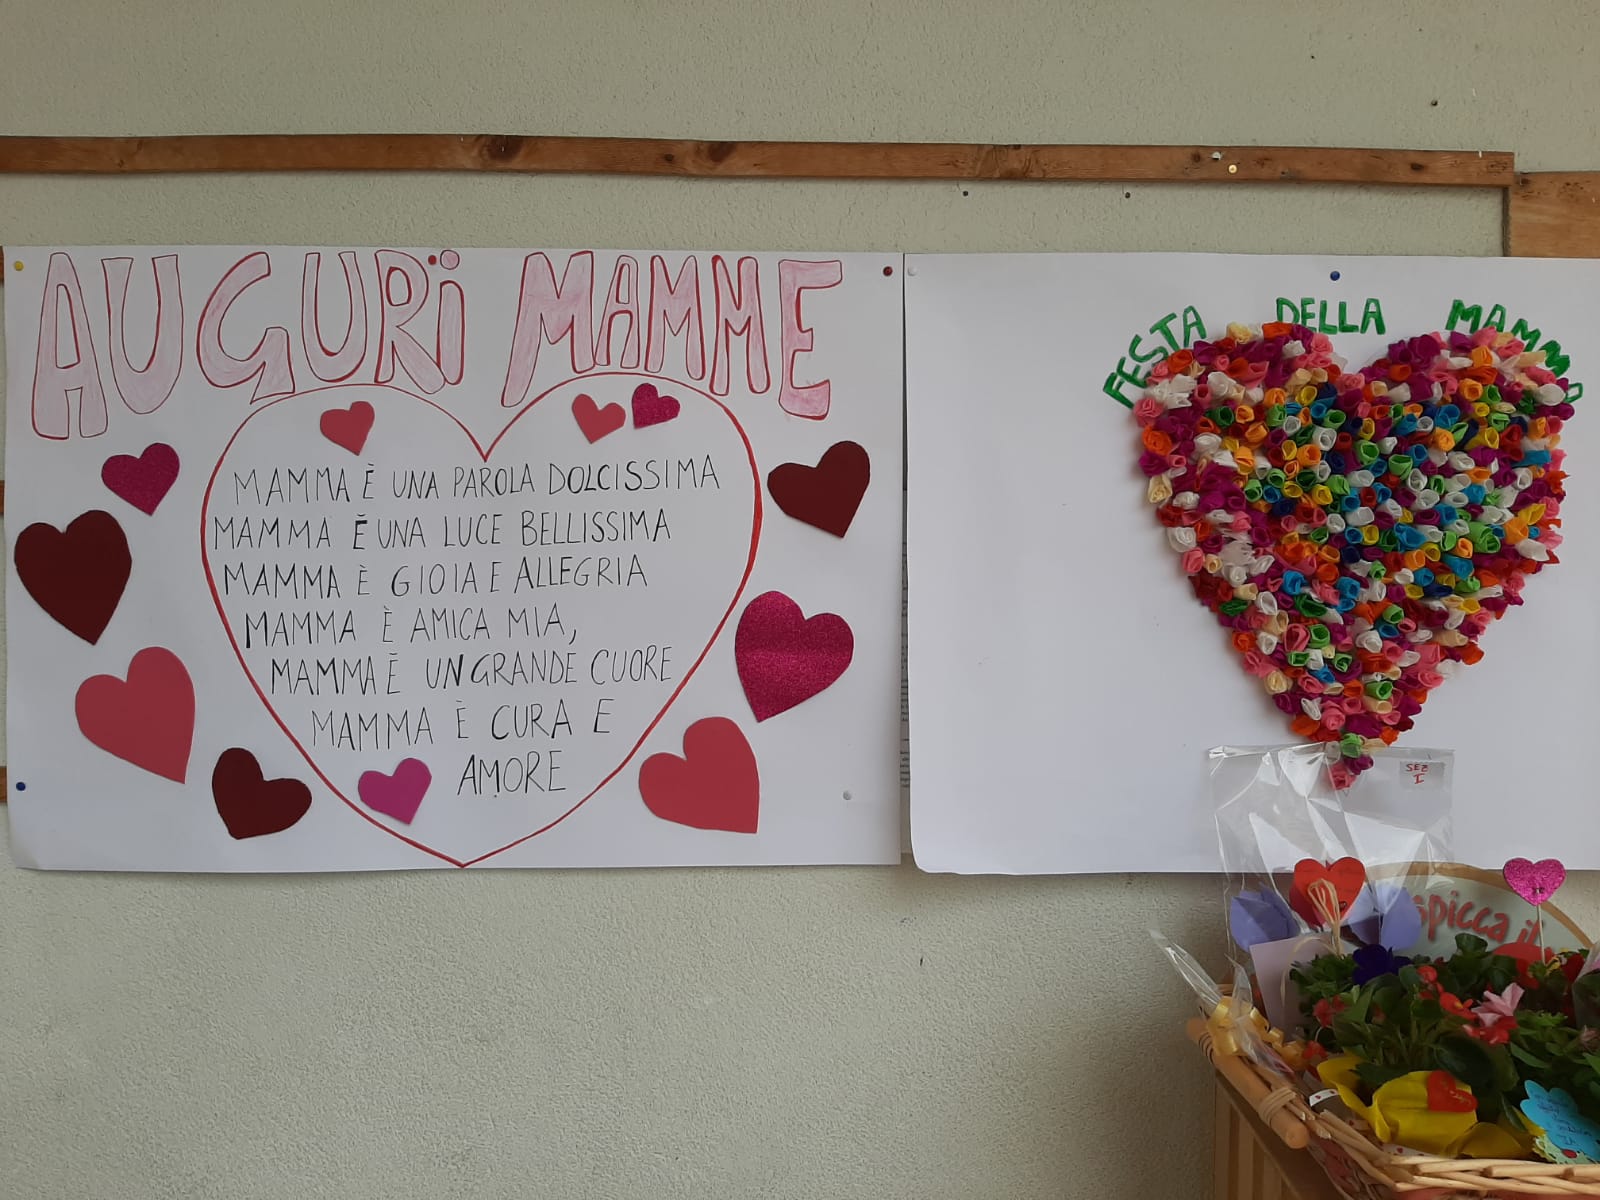 AUGURI MAMME
MAMMA È UNA PAROLA DOLCISSIMA
MAMMA È UNA LUCE BELLISSIMA
MAMMA È GIOIA E ALLEGRIA
MAMMA È AMICA MIA,
MAMMA È UN GRANDE CUORE
MAMMA È CURA E
AMORE
FESTA DELLA MAMMA
SEZ
I
spicca il